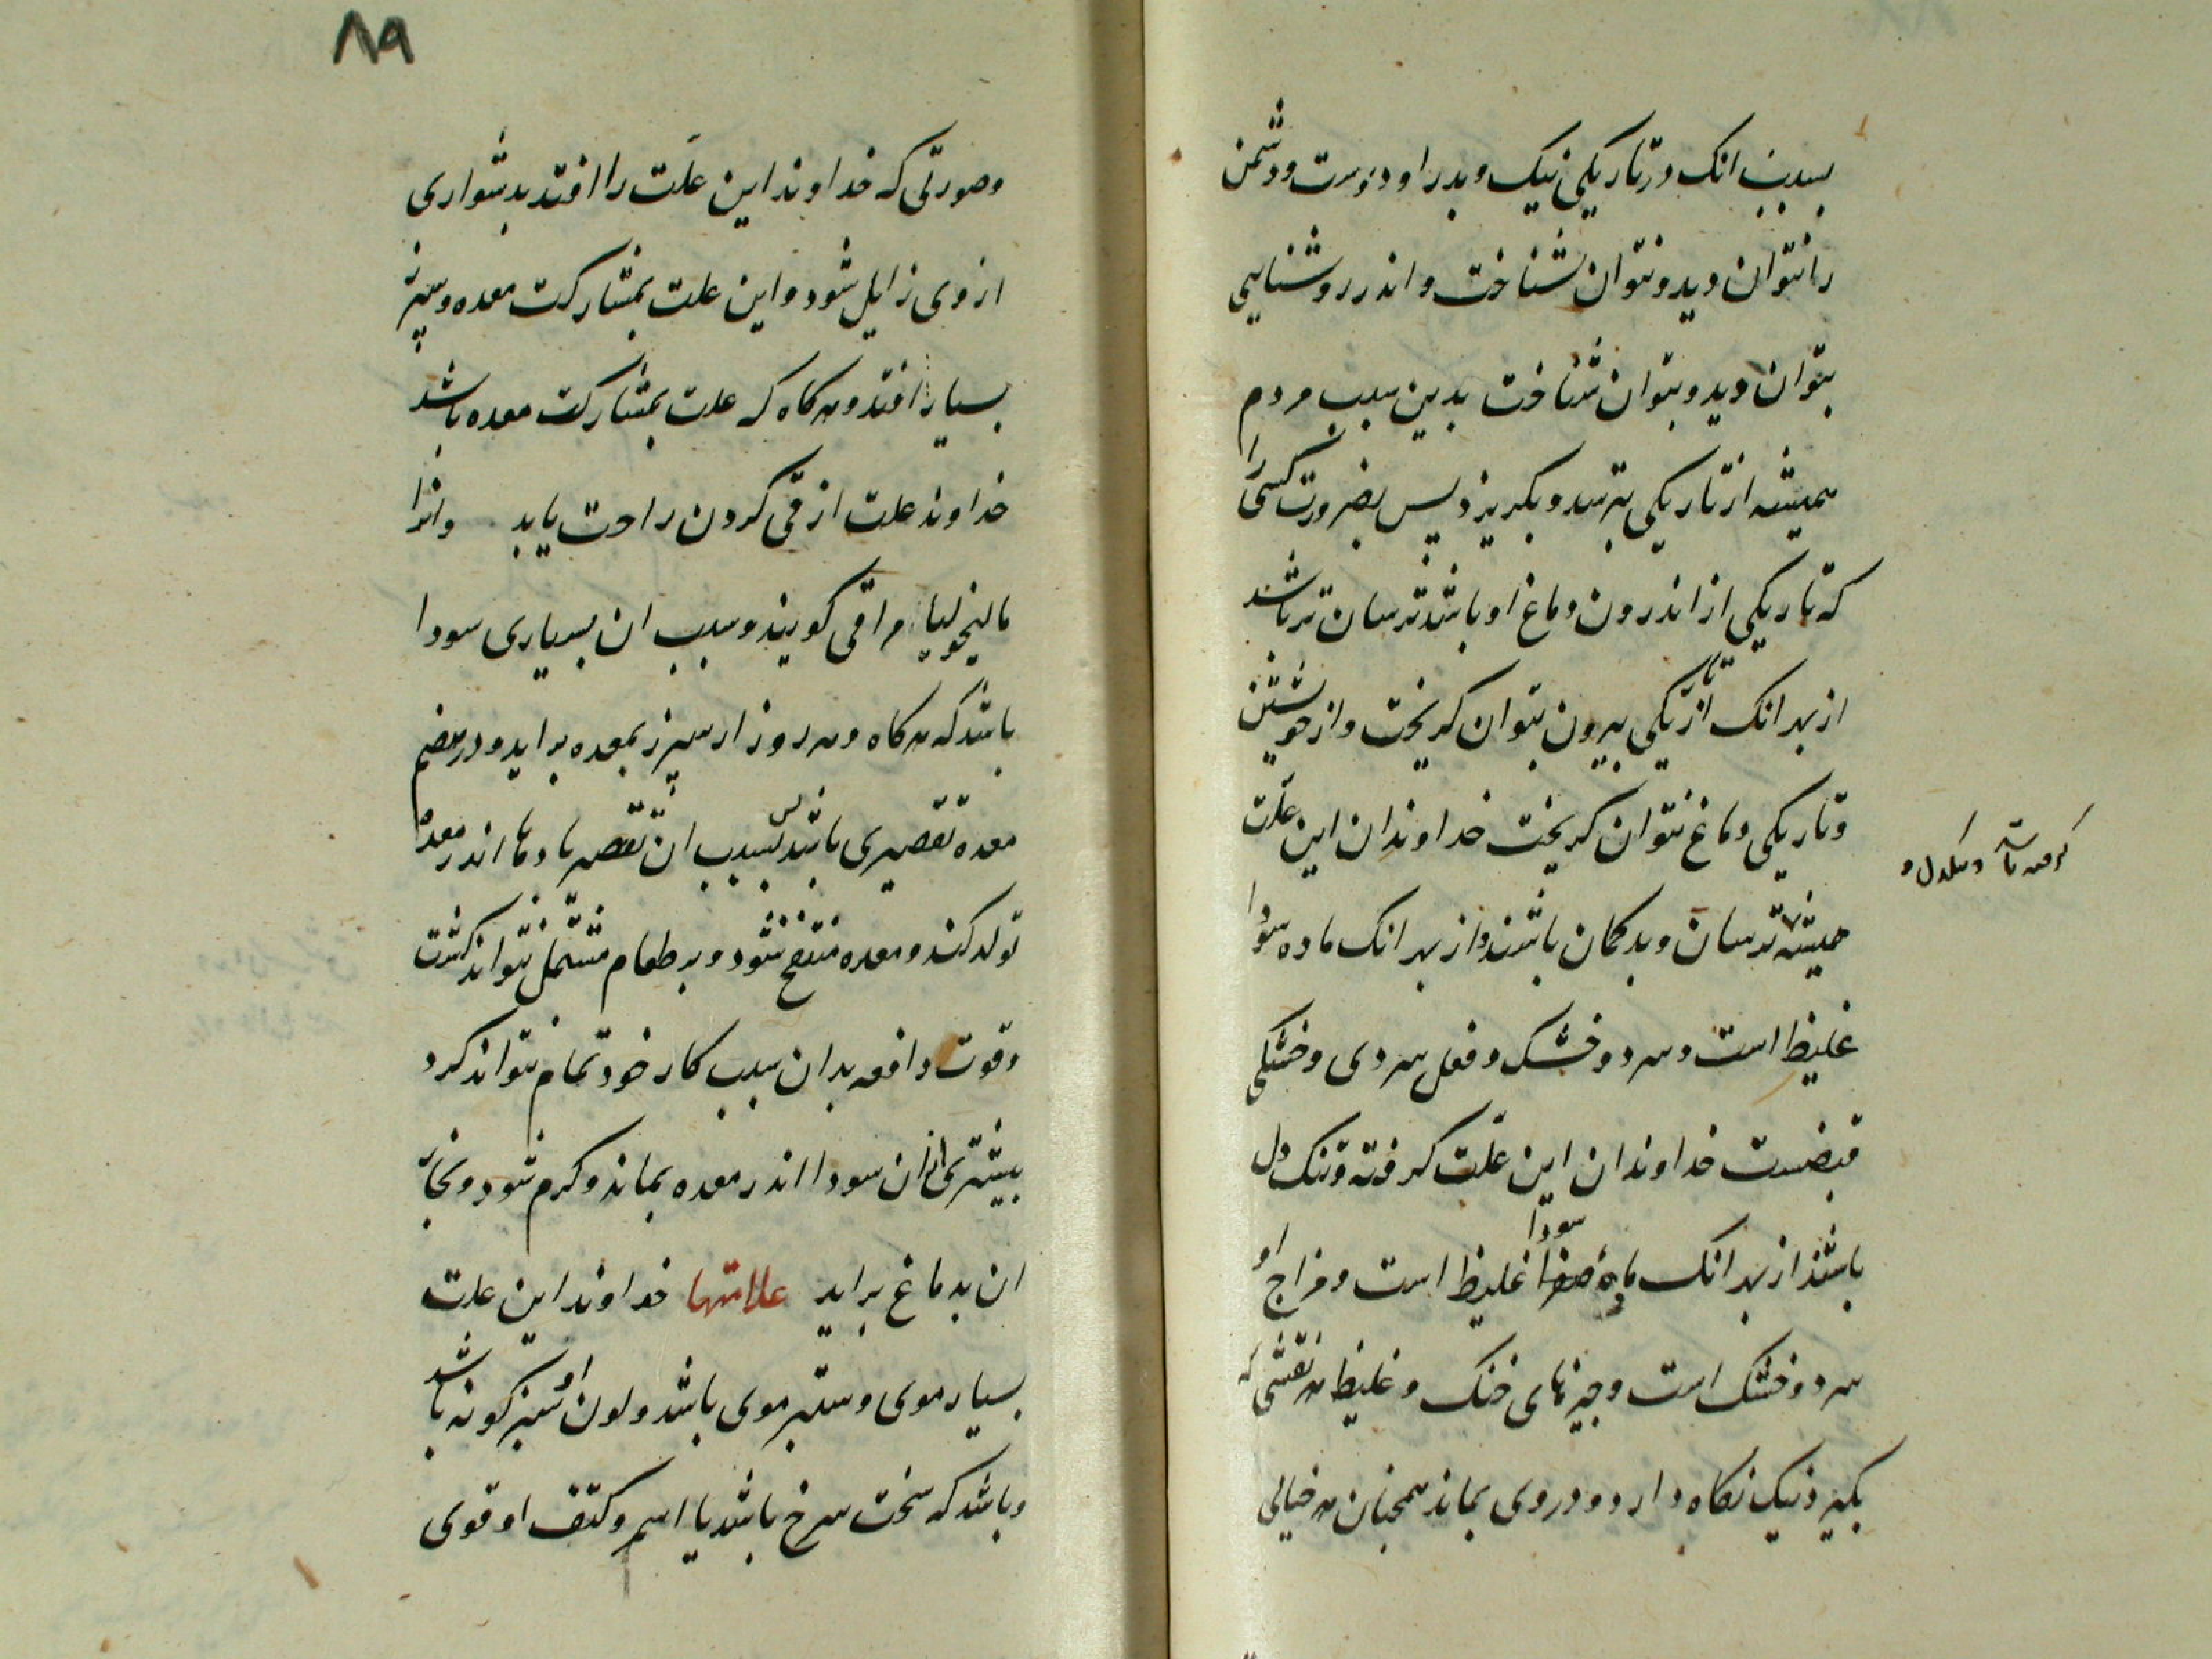 بسبب انک در تاریکی نیک و بد را و دوست و دشمن
را نتوان دید و نتوان شناخت و اندر روشنایی
بتوان دید و بتوان شناخت بدین سبب مردم
همیشه از تاریکی بترسد و بکریزد پس بضرورت کسی را
که تاریکی از اندرون دماغ او باشد ترسان تر باشد
از بهر انک از تاریکی بیرون بتوان کریخت و از خویشتن
و تاریکی دماغ نتوان کریخت خداوندان این علّت
همیشه ترسان و بدکمان باشند و از بهر انک ماده سودا
غلیظ است و سرد و خشک و فعل سردی و خشکی
قبضست خداوندان این علّت کرفته و تنک دل
باشند از بهر انک ماده صفرا سودا غلیظ است و مزاج او
سرد و خشک است و چیزهای خنک و غلیظ هر نقشی که
بکیرد نیک نکاه دارد و در وی بماند همچنان هر خیالی
۸۹
و صورتی که خداوند این علّت را افتد بدشواری
از وی زایل شود و این علت بمشارکت معده و سپرز
بسیار افتد و هر کاه که علت بمشارکت معده باشد
خداوند علت از قی کردن راحت یابد و انرا
مالیخولیا مراقی کویند و سبب ان بسیاری سودا
باشد که هر کاه و هر روز از سپرز بمعده براید و در هضم
معده تقصیری باشد پس بسبب ان تقصیر بادها اندر معده
تولد کند و معده منتفخ شود و بر طعام مشتمل نتواند کشت
و قوت دافعه بدان سبب کار خود تمام نتواند کرد
بیشتری از ان سودا اندر معده بماند و کرم شود و بخار
ان بدماغ براید علامتها خداوند این علت
بسیار موی و ستبر موی باشد و لون او سبز کونه باشد
و باشد که سخت سرخ باشد یا اسمر و کتف او قوی